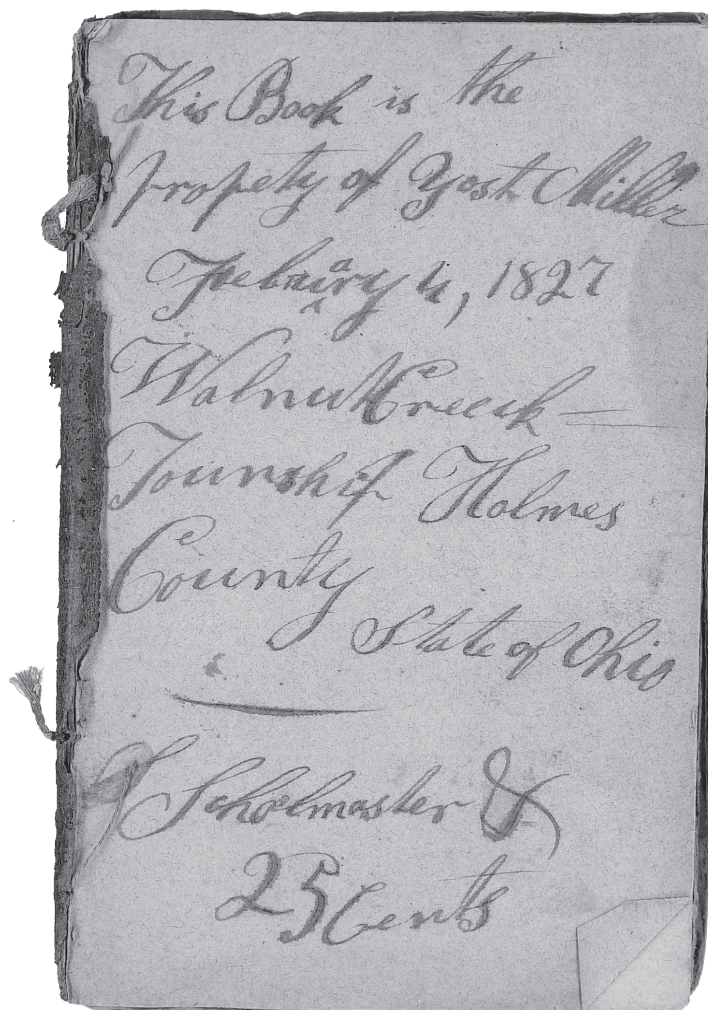 This Book is the
propety of Yost Miller
Febuary 4, 1827
Walnut Creeek
Township Holmes
County
State of Ohio
Scholmaster &
25 Cents